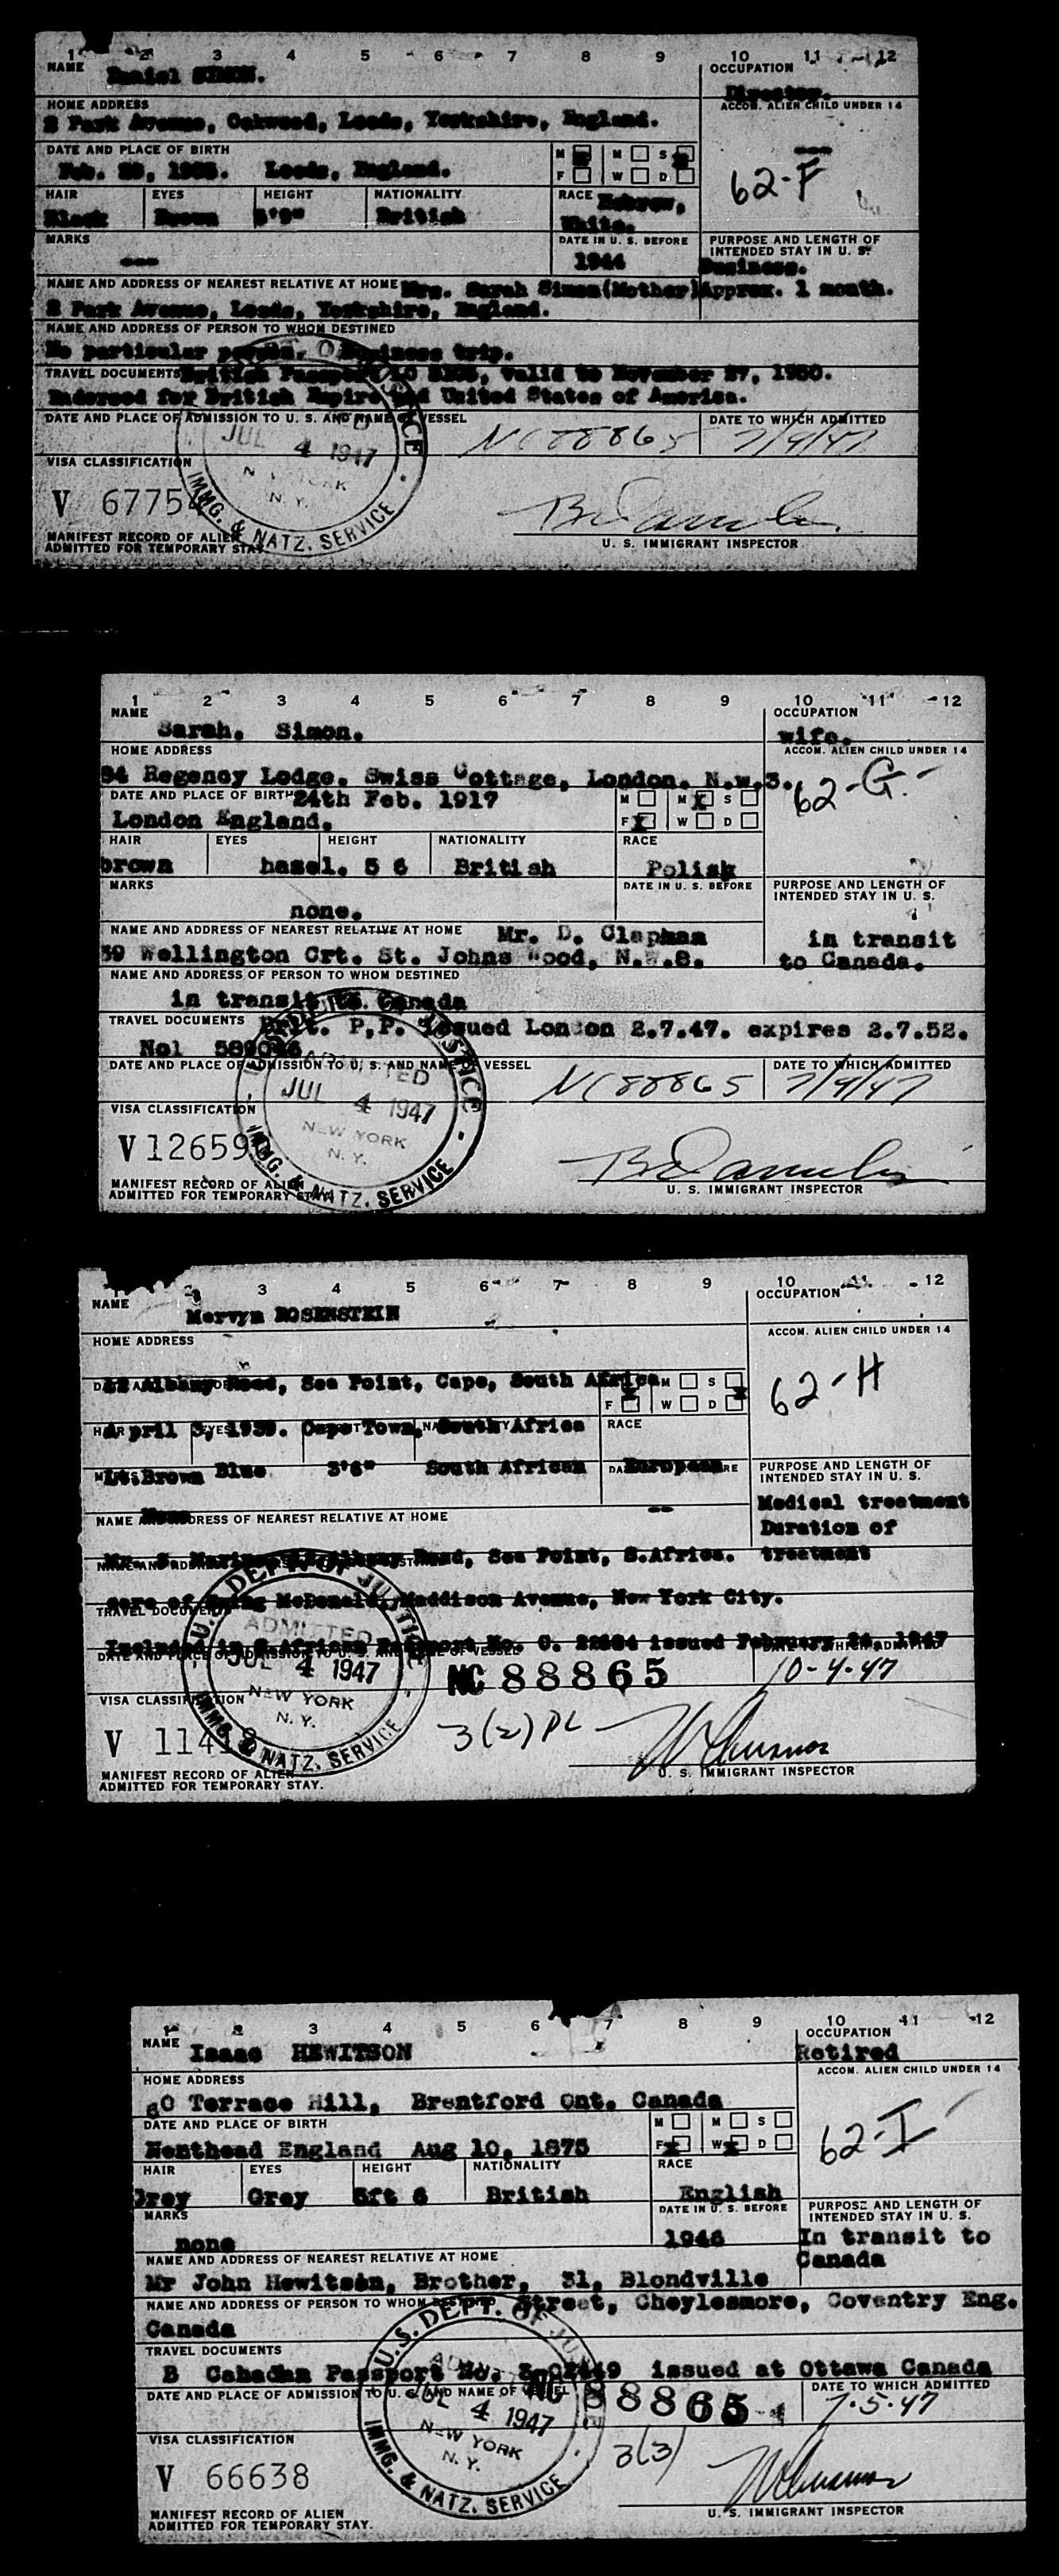 1 2 3 4 5 6 7 8 9 10 11 12
NAME Daniel SIMON.
OCCUPATION
Director.
HOME ADDRESS
ACCOM. ALIEN CHILD UNDER 14
2 Park Avenue, Oakwood, Leeds, Yorkshire, England.
DATE AND PLACE OF BIRTH
M M S
Feb. Leeds, England.
F W D
62-F
HAIR EYES HEIGHT NATIONALITY RACE Hebrew,
Black Brown 5'9" British White.
MARKS DATE IN U. S. BEFORE PURPOSE AND LENGTH OF
INTENDED STAY IN U. S.
--- 1944 Business.
NAME AND ADDRESS OF NEAREST RELATIVE AT HOME Mrs. Sarah Simon(Mother) Approx. 1 month.
2 Park Avenue, Leeds, Yorkshire, England.
NAME AND ADDRESS OF PERSON TO WHOM DESTINED
No particular person. Business trip.
TRAVEL DOCUMENTS British Passport valid to November 27, 1950.
Endorsed for British Empire and United States of America.
DATE AND PLACE OF ADMISSION TO U. S. AND NAME OF VESSEL DATE TO WHICH ADMITTED
JUL 4 1947 NC88865 7/9/47
VISA CLASSIFICATION
N. Y.
V 6775
IMMG. & NATZ. SERVICE
MANIFEST RECORD OF ALIEN
ADMITTED FOR TEMPORARY STAY.
U. S. IMMIGRANT INSPECTOR
1 2 3 4 5 6 7 8 9 10 11 12
NAME OCCUPATION
Sarah. Simon. wife.
HOME ADDRESS ACCOM. ALIEN CHILD UNDER 14
94 Regency Lodge. Swiss Cottage, London. N.W.3.
62-G.
DATE AND PLACE OF BIRTH 24th Feb. 1917 M M S
London England. F W D
HAIR EYES HEIGHT NATIONALITY RACE
brown hazel. 5 6 British Polish
MARKS DATE IN U. S. BEFORE PURPOSE AND LENGTH OF
INTENDED STAY IN U. S.
none.
NAME AND ADDRESS OF NEAREST RELATIVE AT HOME Mr. D. Clapman in transit
59 Wellington Crt. St. Johns Wood, N.W.8. to Canada.
NAME AND ADDRESS OF PERSON TO WHOM DESTINED
in transit to Canada
TRAVEL DOCUMENTS Brit. P.P. issued London 2.7.47. expires 2.7.52.
No1 589046
DATE AND PLACE OF ADMISSION TO U. S. AND NAME OF VESSEL DATE TO WHICH ADMITTED
JUL 4 1947 NC88865 7/9/47
VISA CLASSIFICATION
NEW YORK
N. Y.
V 12659
IMMG. & NATZ. SERVICE
MANIFEST RECORD OF ALIEN
ADMITTED FOR TEMPORARY STAY.
U. S. IMMIGRANT INSPECTOR
3 4 5 6 7 8 9 10 11 12
NAME Mervyn ROSENSTEIN
OCCUPATION
HOME ADDRESS
ACCOM. ALIEN CHILD UNDER 14
Albany Road, Sea Point, Cape, South Africa M S
F W D
62-H
April 3, 1939. Cape Town, South Africa RACE
Lt.Brown Blue 3'6" South African European
PURPOSE AND LENGTH OF
INTENDED STAY IN U. S.
None --
Medical treatment
NAME AND ADDRESS OF NEAREST RELATIVE AT HOME
Duration of
Albany Road, Sea Point, S.Africa. treatment
care of McDonald, Maddison Avenue, New York City.
TRAVEL DOCUMENTS
Included in S.African Passport No. issued February 24, 1947
DATE AND PLACE OF ADMISSION TO U. S. AND NAME OF VESSEL
U. S. DEPT. OF JUSTICE
ADMITTED
JUL 4 1947 NC 88865 10-4-47
VISA CLASSIFICATION
NEW YORK
N. Y.
3(2)PL
V 114
IMMG. & NATZ. SERVICE
MANIFEST RECORD OF ALIEN
ADMITTED FOR TEMPORARY STAY.
U. S. IMMIGRANT INSPECTOR
1 2 3 4 5 6 7 8 9 10 11 12
NAME Isaac HEWITSON
OCCUPATION
Retired
HOME ADDRESS ACCOM. ALIEN CHILD UNDER 14
60 Terrace Hill, Brentford Ont. Canada
DATE AND PLACE OF BIRTH M M S
Nenthead England Aug 10, 1875 F W D
62-I
HAIR EYES HEIGHT NATIONALITY RACE
Grey Grey 5ft 6 British English
MARKS DATE IN U. S. BEFORE PURPOSE AND LENGTH OF
INTENDED STAY IN U. S.
none 1946 In transit to
Canada
NAME AND ADDRESS OF NEAREST RELATIVE AT HOME
Mr John Hewitson, Brother, 31, Blondville
NAME AND ADDRESS OF PERSON TO WHOM DESTINED Street, Cheylesmore, Coventry Eng.
Canada
TRAVEL DOCUMENTS
B Canadian Passport No. issued at Ottawa Canada
DATE AND PLACE OF ADMISSION TO U. S. AND NAME OF VESSEL DATE TO WHICH ADMITTED
U.S. DEPT. OF JUSTICE
JUL 4 1947 NC 88865 7.5.47
VISA CLASSIFICATION
NEW YORK
N. Y.
3(3)
V 66638
IMMG. & NATZ. SERVICE
MANIFEST RECORD OF ALIEN
ADMITTED FOR TEMPORARY STAY.
U. S. IMMIGRANT INSPECTOR